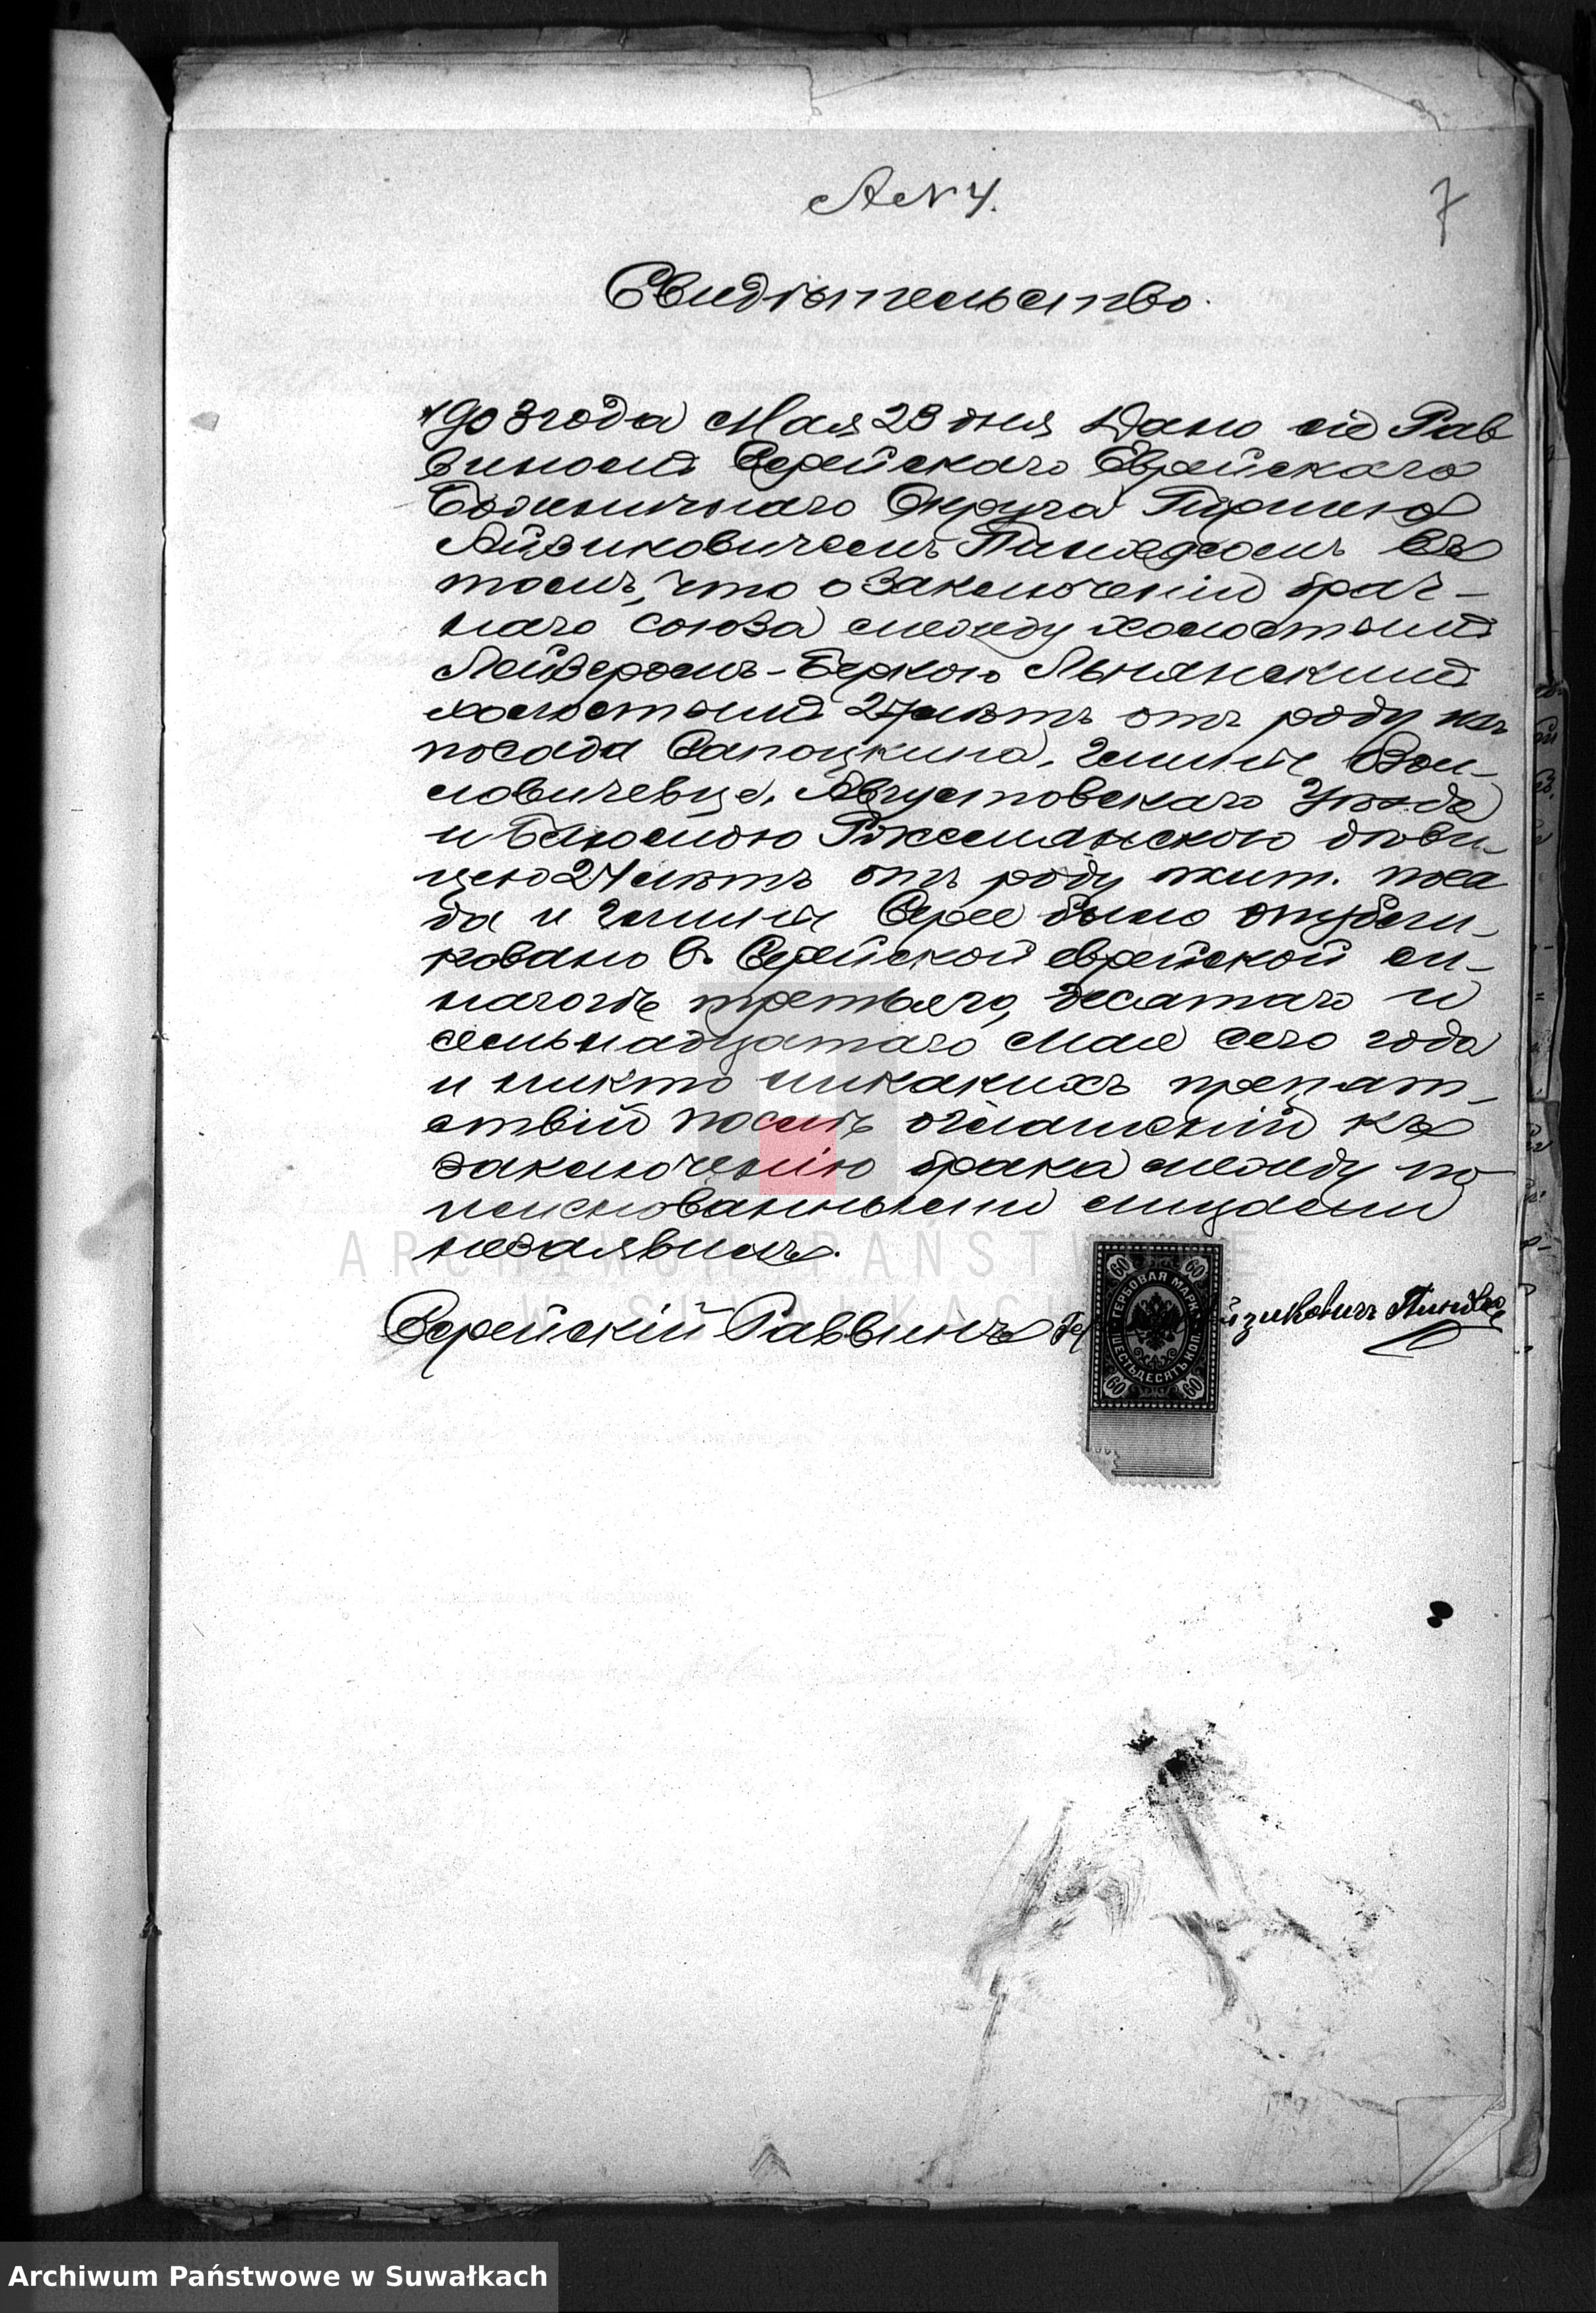 А N 4.
7
Свидѣтельство.
1903 года Мая 23 дня Дано сіе Рав
виномъ Серейскаго Еврейскаго
Божничнаго Округа Гиршею
Айзиковичемъ въ
томъ, что о заключеніи брач-
наго союза между холостымъ
Лейзеромъ-Беркою
холостымъ 27 лѣтъ отъ роду изъ
посада Сапоцкина, гмины Вол-
ловичевце, Августовскаго Уѣзда
и Блюмою дѣви-
цею 24 лѣтъ отъ роду жит. поса
да и гмины Серее было опубли-
ковано в. Серейской еврейской си-
нагогѣ третьяго, десятаго и
семьнадцатаго Мая сего года
и никто никакихъ препят-
ствій послѣ оглашеній къ
заключенію брака между по
именованными лицами
незаявилъ.
Серейскій Раввинъ йзиковичъ
60 60
ГЕРБОВАЯ МАРКА
ШЕСТЬДЕСЯТЬ КОП.
60 60
ARCHIWUM PAŃSTWOWE
W SUWAŁKACH
Archiwum Państwowe w Suwałkach